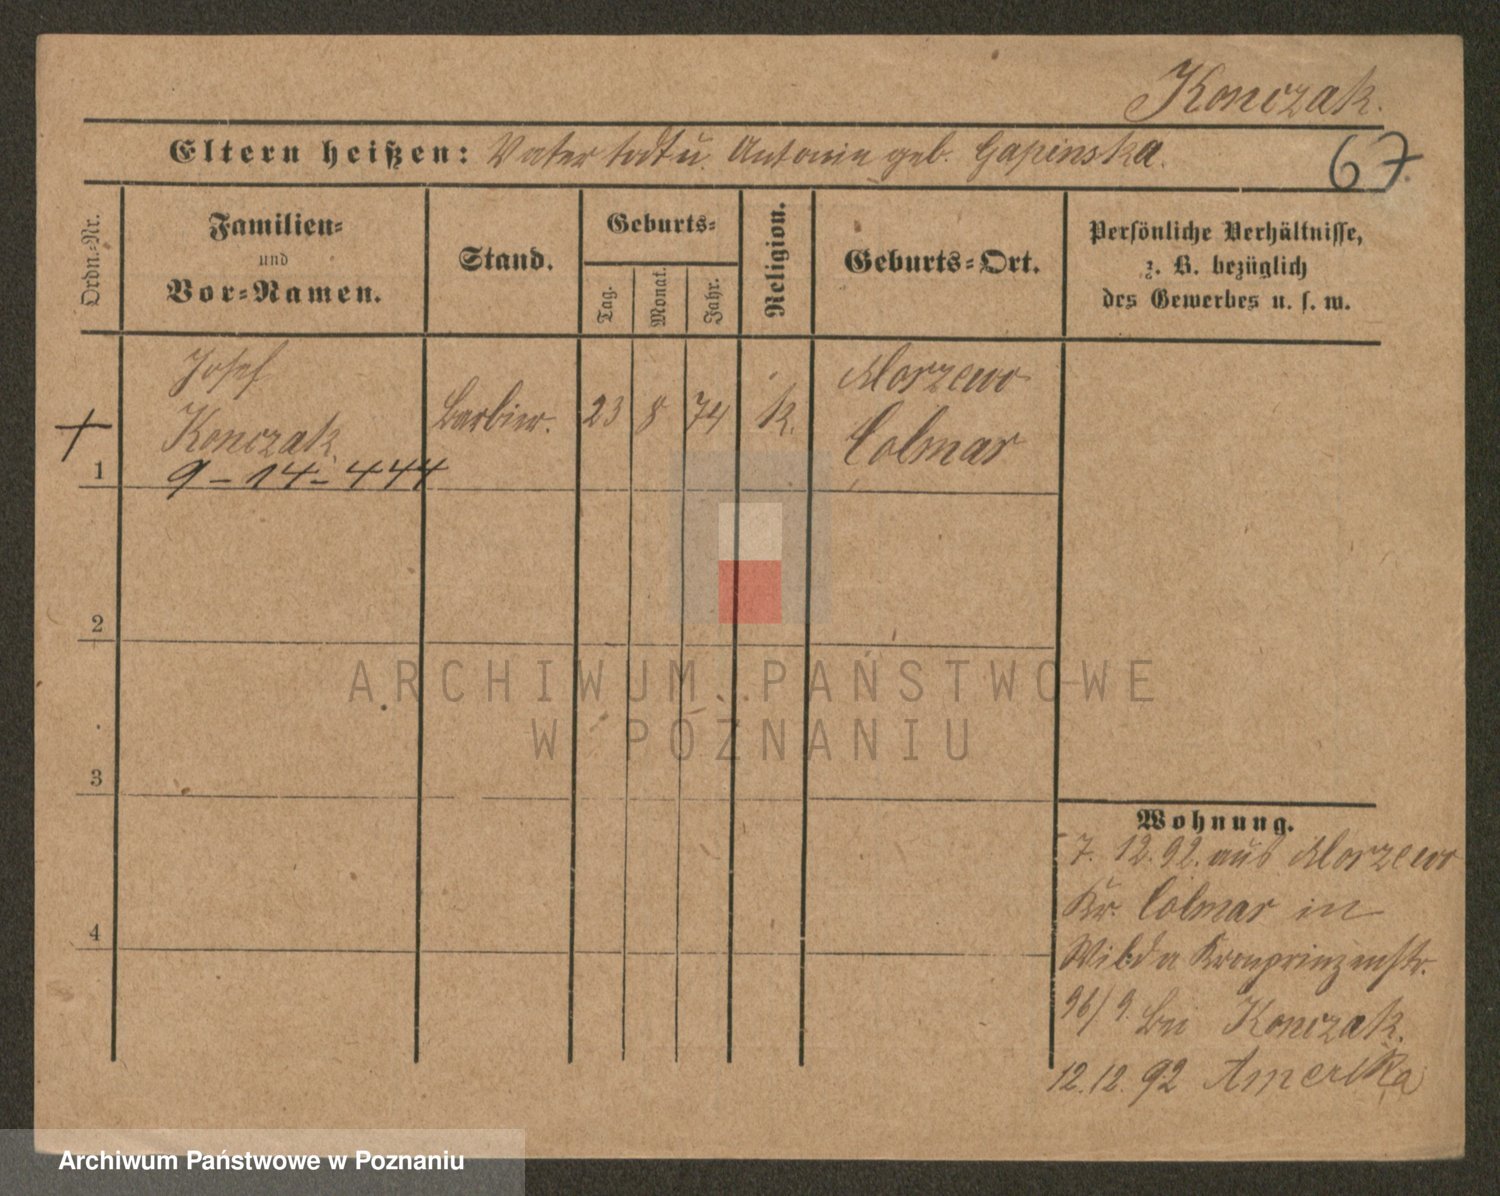 Konczak.
Eltern heißen: Vater todt u. Antonie geb. Gapinska.
67.
Ordn.-Nr.
Familien-
und
Vor-Namen.
Stand.
Geburts-
Tag.
Monat.
Jahr.
Religion.
Geburts-Ort.
Persönliche Verhältnisse,
z. B. bezüglich
des Gewerbes u. s. w.
Josef
Konczak
9-14-444
Barbier.
23
8
74
K.
Morzewo
Colmar
1
2
3
4
Wohnung.
7. 12. 92. aus Morzewo
Kr. Colmar in
Wilda Kronprinzenstr.
96/9. bei Konczak.
12. 12. 92 Amerika
ARCHIWUM PAŃSTWOWE
W POZNANIU
Archiwum Państwowe w Poznaniu